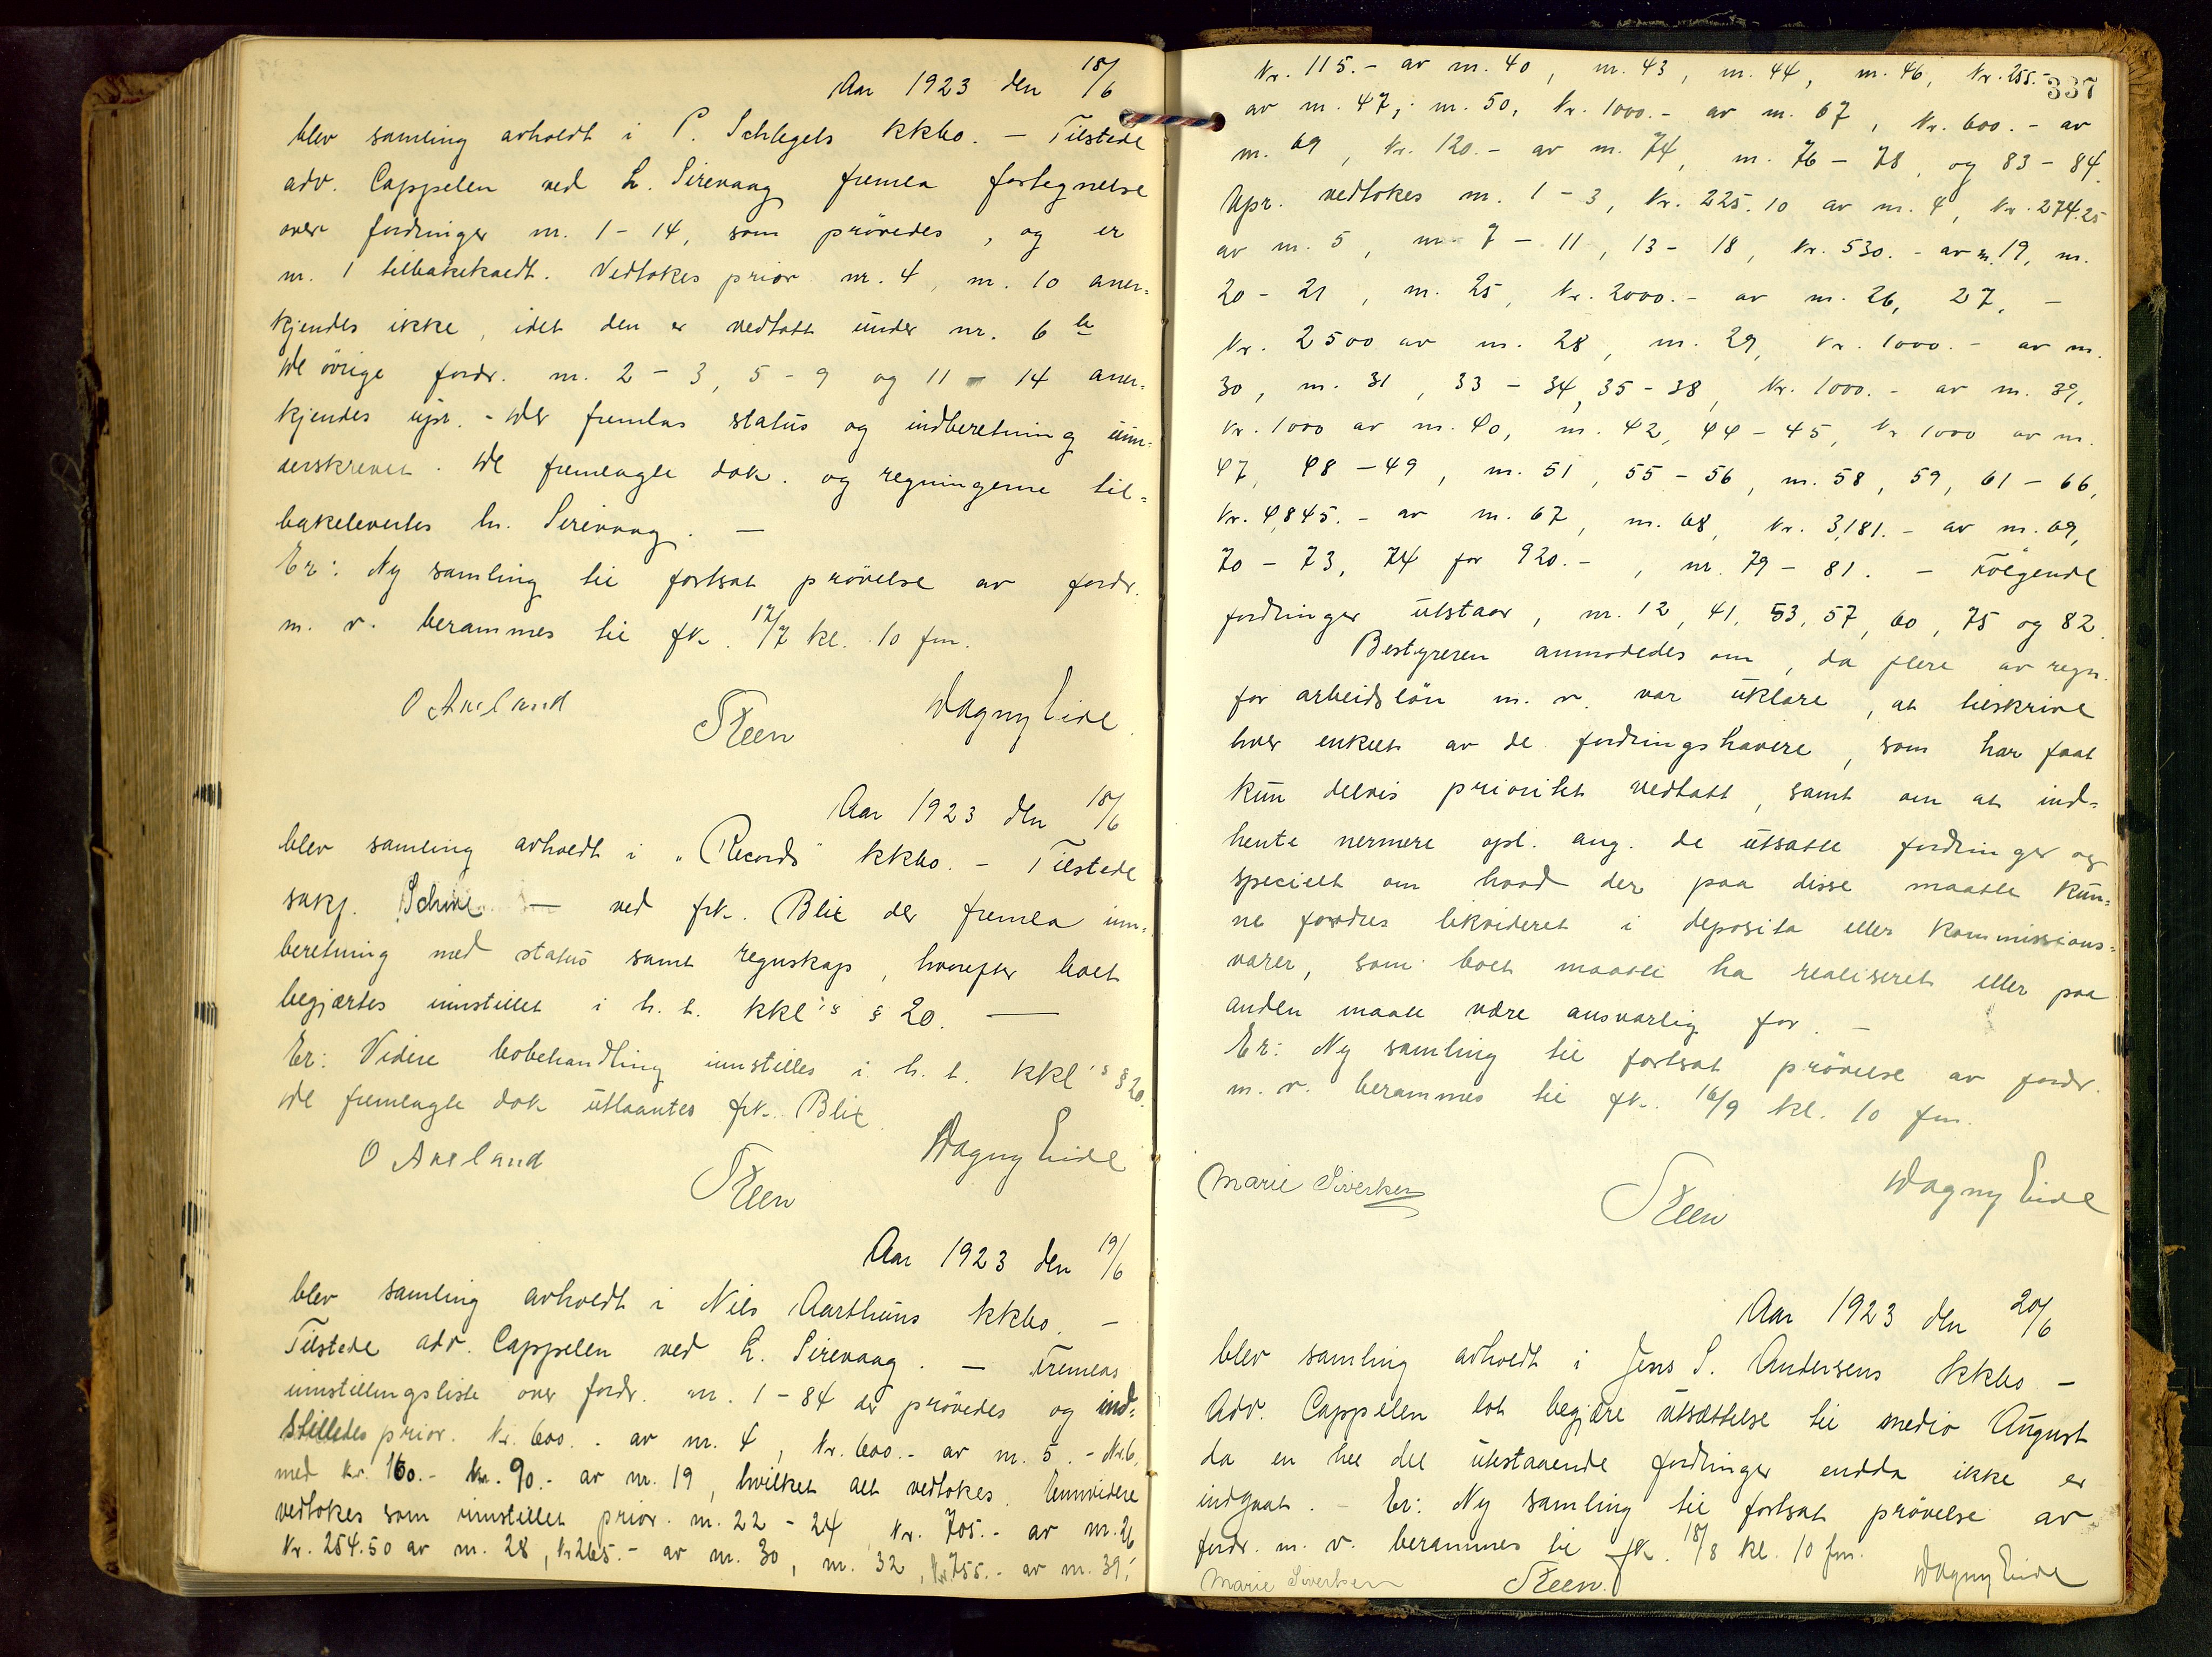 Aar 1923 den 18/6
blev samling avholdt i P. Schlegels kkbo. - Tilstede
adv. Cappelen ved L. Sirevaag fremla fortegnelse
over fordringer nr. 1 - 14, som prövedes, og er
nr. 1 tilbakekaldt. Vedtokes prior nr. 4, nr. 10 aner=
kjendes ikke, idet den er vedtatt under nr. 6 b
De övrige fordr. nr. 2 - 3, 5 - 9 og 11 - 14 aner=
kjendes upr. - Der fremlas status og indberetning un=
derskrevet. De fremlagte dok. og regningerne til=
bakelevertes hr. Sirevaag. -
Er: Ny samling til fortsat prövelse av fordr.
m. v. berammes til fk. 17/7 kl. 10 fm.
O Aaeland Steen Dagny Eide
Aar 1923 den 18/6
blev samling avholdt i "Records" kkbo. - Tilstede
sakf. Schive - ved frk. Blix der fremla inn=
beretning med status samt regnskap, hvorefter boet
begjærtes innstillet i h. t. kkl's § 20. -
Er: Videre bobehandling innstilles i h. t. kkl's § 20.
De fremlagte dok utlaantes frk. Blix.
O Aaeland Steen Dagny Eide
Aar 1923 den 19/6
blev samling avholdt i Nils Aarthuns kkbo. -
Tilstede adv. Cappelen ved L. Sirevaag. - Fremlas
innstillingsliste over fordr. nr. 1 - 84 der prövedes og ind=
stilledes prior. Kr. 600.- av nr. 4, Kr. 600.- av nr. 5. - Nr. 6,
med kr. 160.- kr. 90.- av nr. 19, hvilket alt vedtokes. Ennvidere
vedtokes som innstillet prior. nr. 22 - 24, Kr. 705.- av nr. 26
Kr. 254.50 av nr. 28, Kr 265.- av nr. 30, nr. 32, Kr. 755.- av nr. 39,
337
Kr. 115.- av nr. 40, nr. 43, nr. 44, nr. 46, Kr. 255.-
av nr. 47, nr. 50, Kr. 1000.- av nr. 67, Kr. 600.- av
nr. 69, Kr. 120.- av nr. 74, nr. 76 - 78, og 83 - 84.
Upr. vedtokes nr. 1 - 3, Kr. 225.10 av nr. 4, Kr. 274.25
av nr. 5, nr. 7 - 11, 13 - 18, Kr. 530.- av nr. 19, nr.
20 - 21, nr. 25, Kr. 2000.- av nr. 26, 27, -
Kr. 2500 av nr. 28, nr. 29, Kr. 1000.- av nr.
30, nr. 31, 33 - 34, 35 - 38, Kr. 1000.- av nr. 39,
Kr. 1000 av nr. 40, nr. 42, 44 - 45, Kr 1000 av nr.
47, 48 - 49, nr. 51, 55 - 56, nr. 58, 59, 61 - 66,
Kr. 4,845.- av nr. 67, nr. 68, Kr. 3,181.- av nr. 69,
70 - 73, 74 for 920.-, nr. 79 - 81. - Fölgende
fordringer utstaar, nr. 12, 41, 53, 57, 60, 75 og 82.
Bestyreren anmodedes om, da flere av regn.
for arbeidslön m. v. var uklare, at tilskrive
hver enkelt av de fordringshavere, som har faat
kun delvis prioritet vedtatt, samt om at ind=
hente nermere opl. ang. de utsatte fordringer og
specielt om hvad der paa disse maatte kun=
ne fordres likvideret i deposita eller kommissions=
varer, som boet maatte ha realiseret eller paa
anden maate være ansvarlig for. -
Er: Ny samling til fortsat prövelse av fordr.
m. v. berammes til fk. 16/9 kl. 10 fm.
Marie Sivertsen Steen Dagny Eide
Aar 1923 den 20/6
blev samling avholdt i Jens S. Andersens kkbo -
Adv. Cappelen lot begjære utsættelse til medio August
da en hel del utestaaende fordringer endda ikke er
indgaat. - Er: Ny samling til fortsat prövelse av
fordr. m. v. berammes til fk. 18/8 kl. 10 fm.
Marie Sivertsen Steen. Dagny Eide